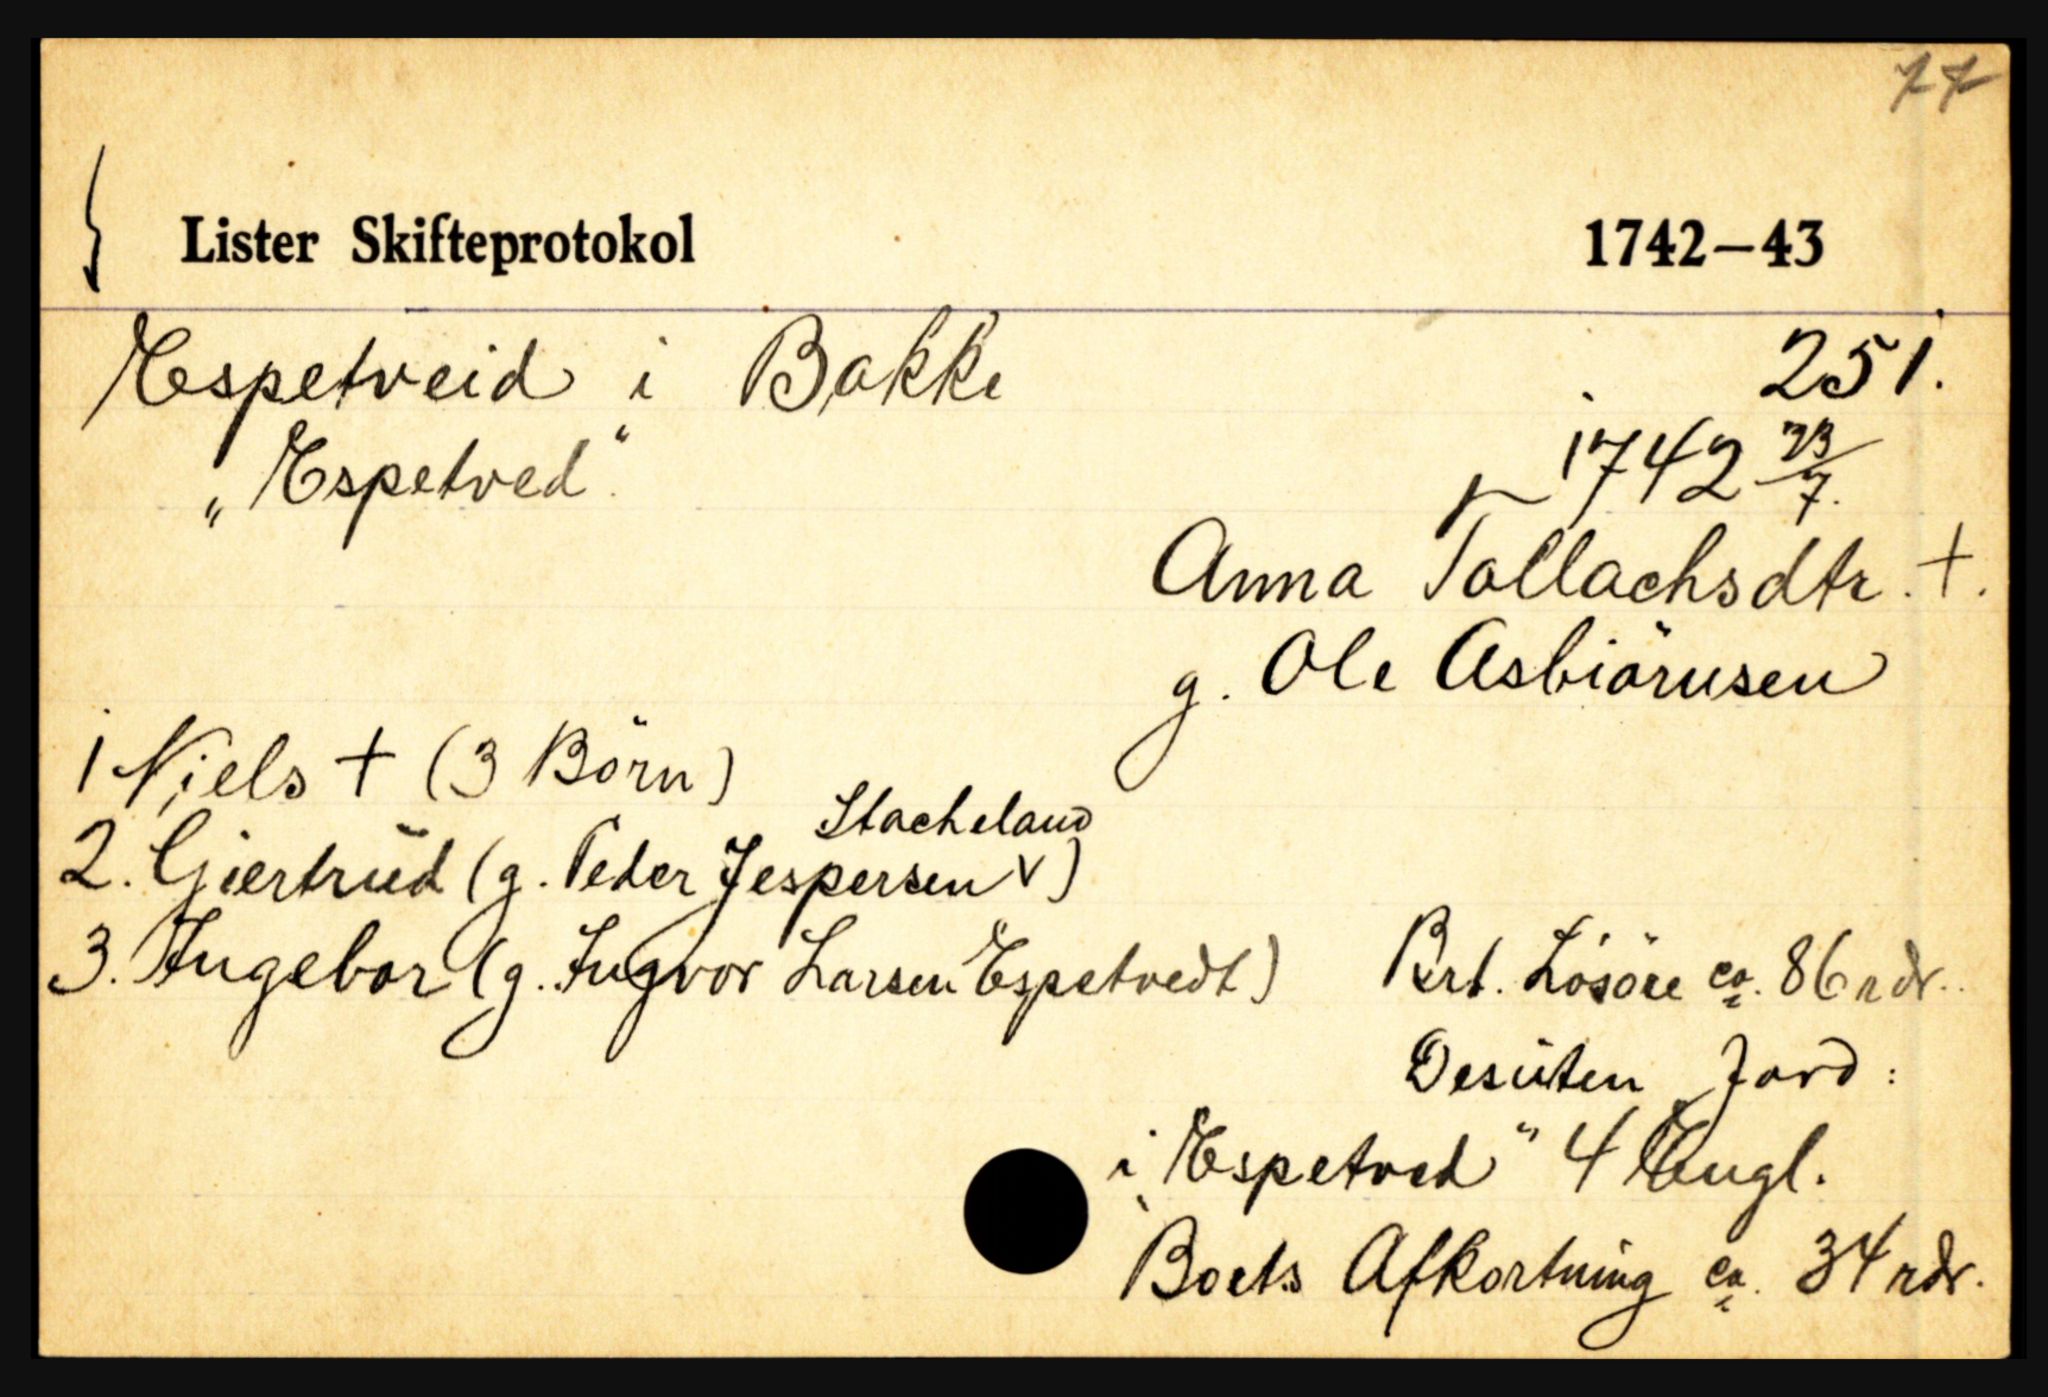 77
Lister Skifteprotokol 1742–43
Espetveid i Bakke 251.
„Espetved“. 1742 23/7.
Anna Tollachsdtr. †.
g. Ole Asbiörnsen
1 Niels † (3 Börn)
Stacheland
2. Giertrud (g. Peder Jespersen v)
3. Ingebor (g. Ingvor Larsen Espetvedt) Brt. Lösöre ca. 86 rdr.
Desuten Jord:
i „Espetved“ 4 Engl.
Boets Afkortning ca. 34 rdr.